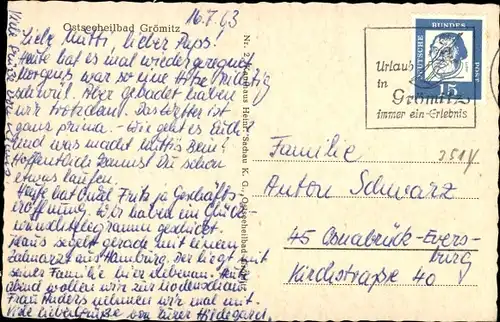 Ostseeheilbad Grömitz
16.7.63
Liebe Mutti, lieber Paps!
Heute hat es mal wieder geregnet.
Morgens war so eine Hitze
schwül. Aber gebadet haben
wir trotzdem. Das Wetter ist
ganz prima. – Wie geht es Euch?
Und was macht Muttis Bein?
Hoffentlich kannst Du schon
etwas laufen.
Heute hat Onkel Fritz ja Geschäfts-
eröffnung. Wir haben ein Glück-
wunschtelegramm geschickt.
Klaus segelt gerade mit einem
Zahnarzt aus Hamburg. Der liegt mit
seiner Familie hier nebenan. Heute
abend wollen wir zur Modenschau
Frau Anders nehmen wir mal mit.
Viele liebe Grüße von Eurer Hildegard.
Nr. 2 Kaufhaus Heinr. Sachau K. G., Ostseeheilbad Grömitz
Urlaub
in
Grömitz
immer ein Erlebnis
DEUTSCHE BUNDESPOST
15
Familie
Anton Schwarz
45 Osnabrück-Evers-
burg
Kirchstraße 40